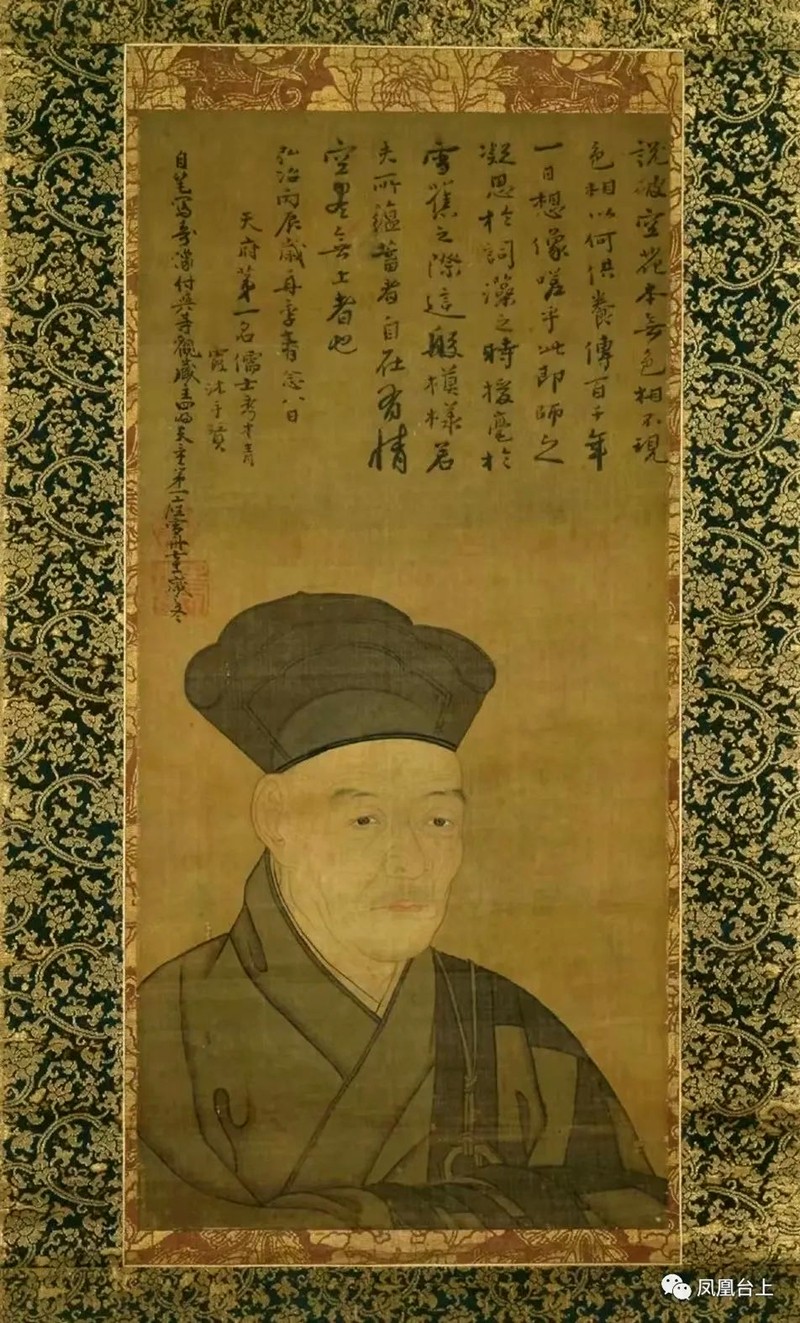 說破空花本無色相不現
色相以何供養傳百千年
一日想像嗟乎此即師之
凝思於詞藻之時援毫於
雪蕉之際這般模樣若
夫所蘊蓄者自在有情
空墨無上者也
弘治丙辰歲舟季春念八日
天府第一名儒士考中青
霞沈子賢
自芝寫壽像付與等觀藏主
凤凰台上